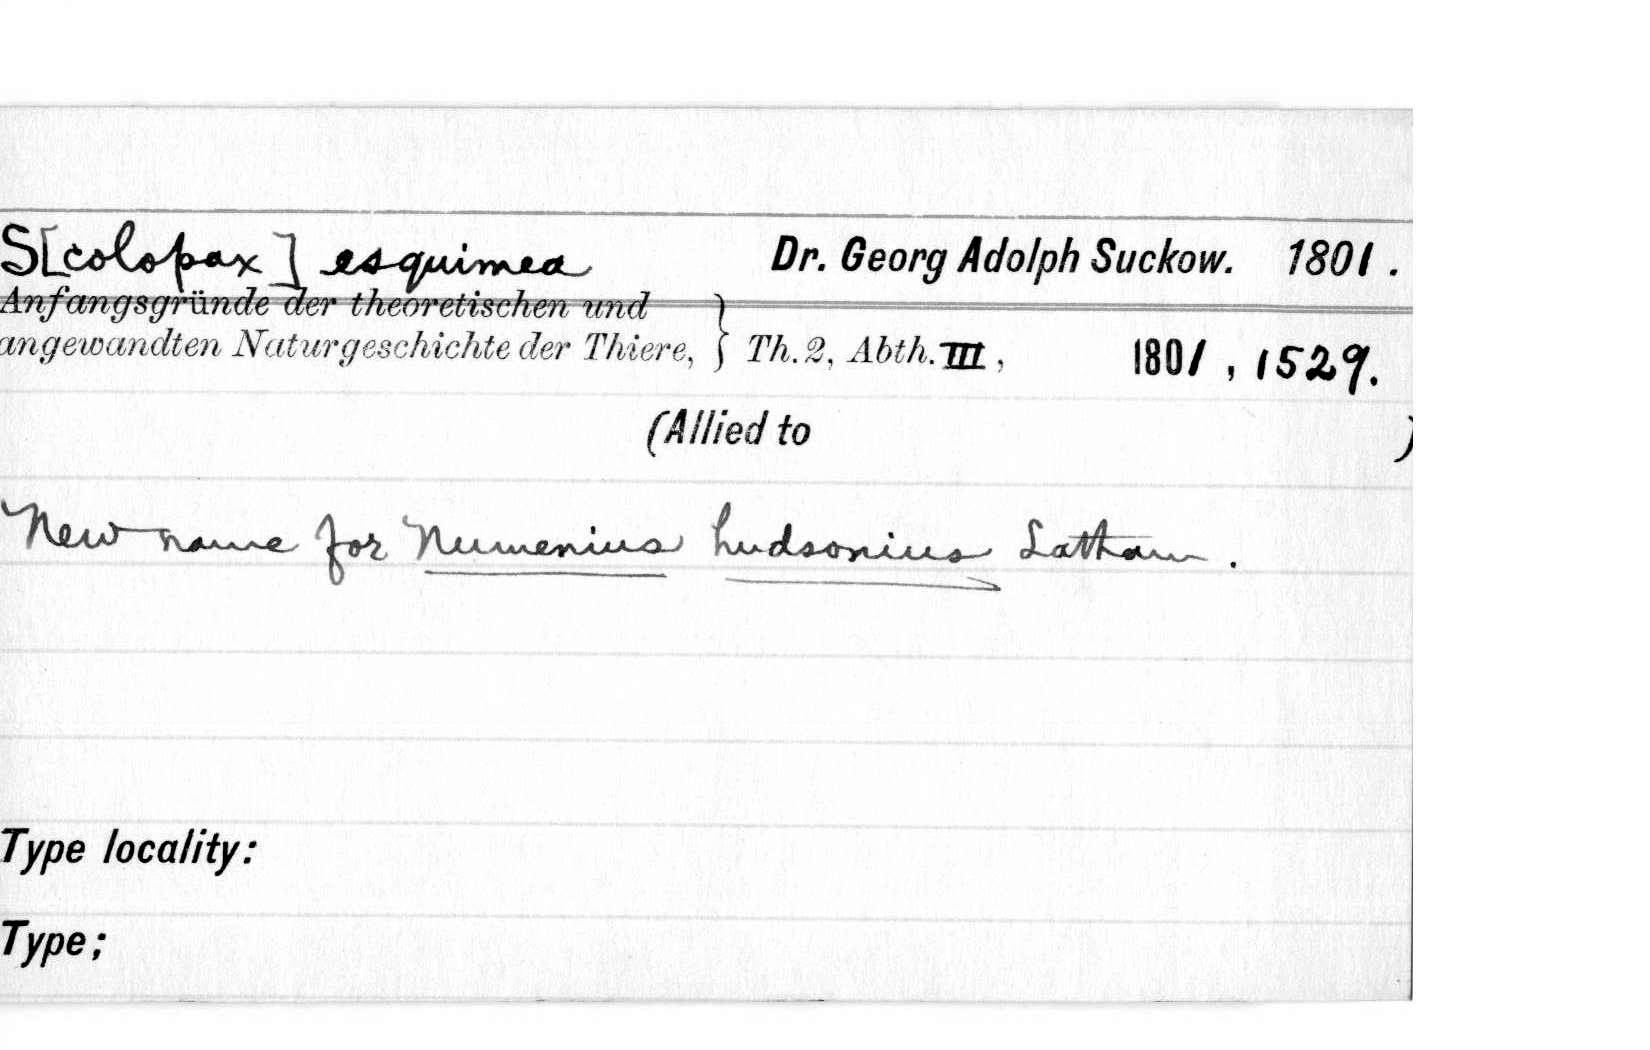 S[colopax] esquimea Dr. Georg Adolph Suckow. 1801.
Anfangsgründe der theoretischen und
angewandten Naturgeschichte der Thiere, } Th. 2, Abth. III, 1801, 1529.
(Allied to )
New name for Numenius hudsonius Latham.
Type locality:
Type;